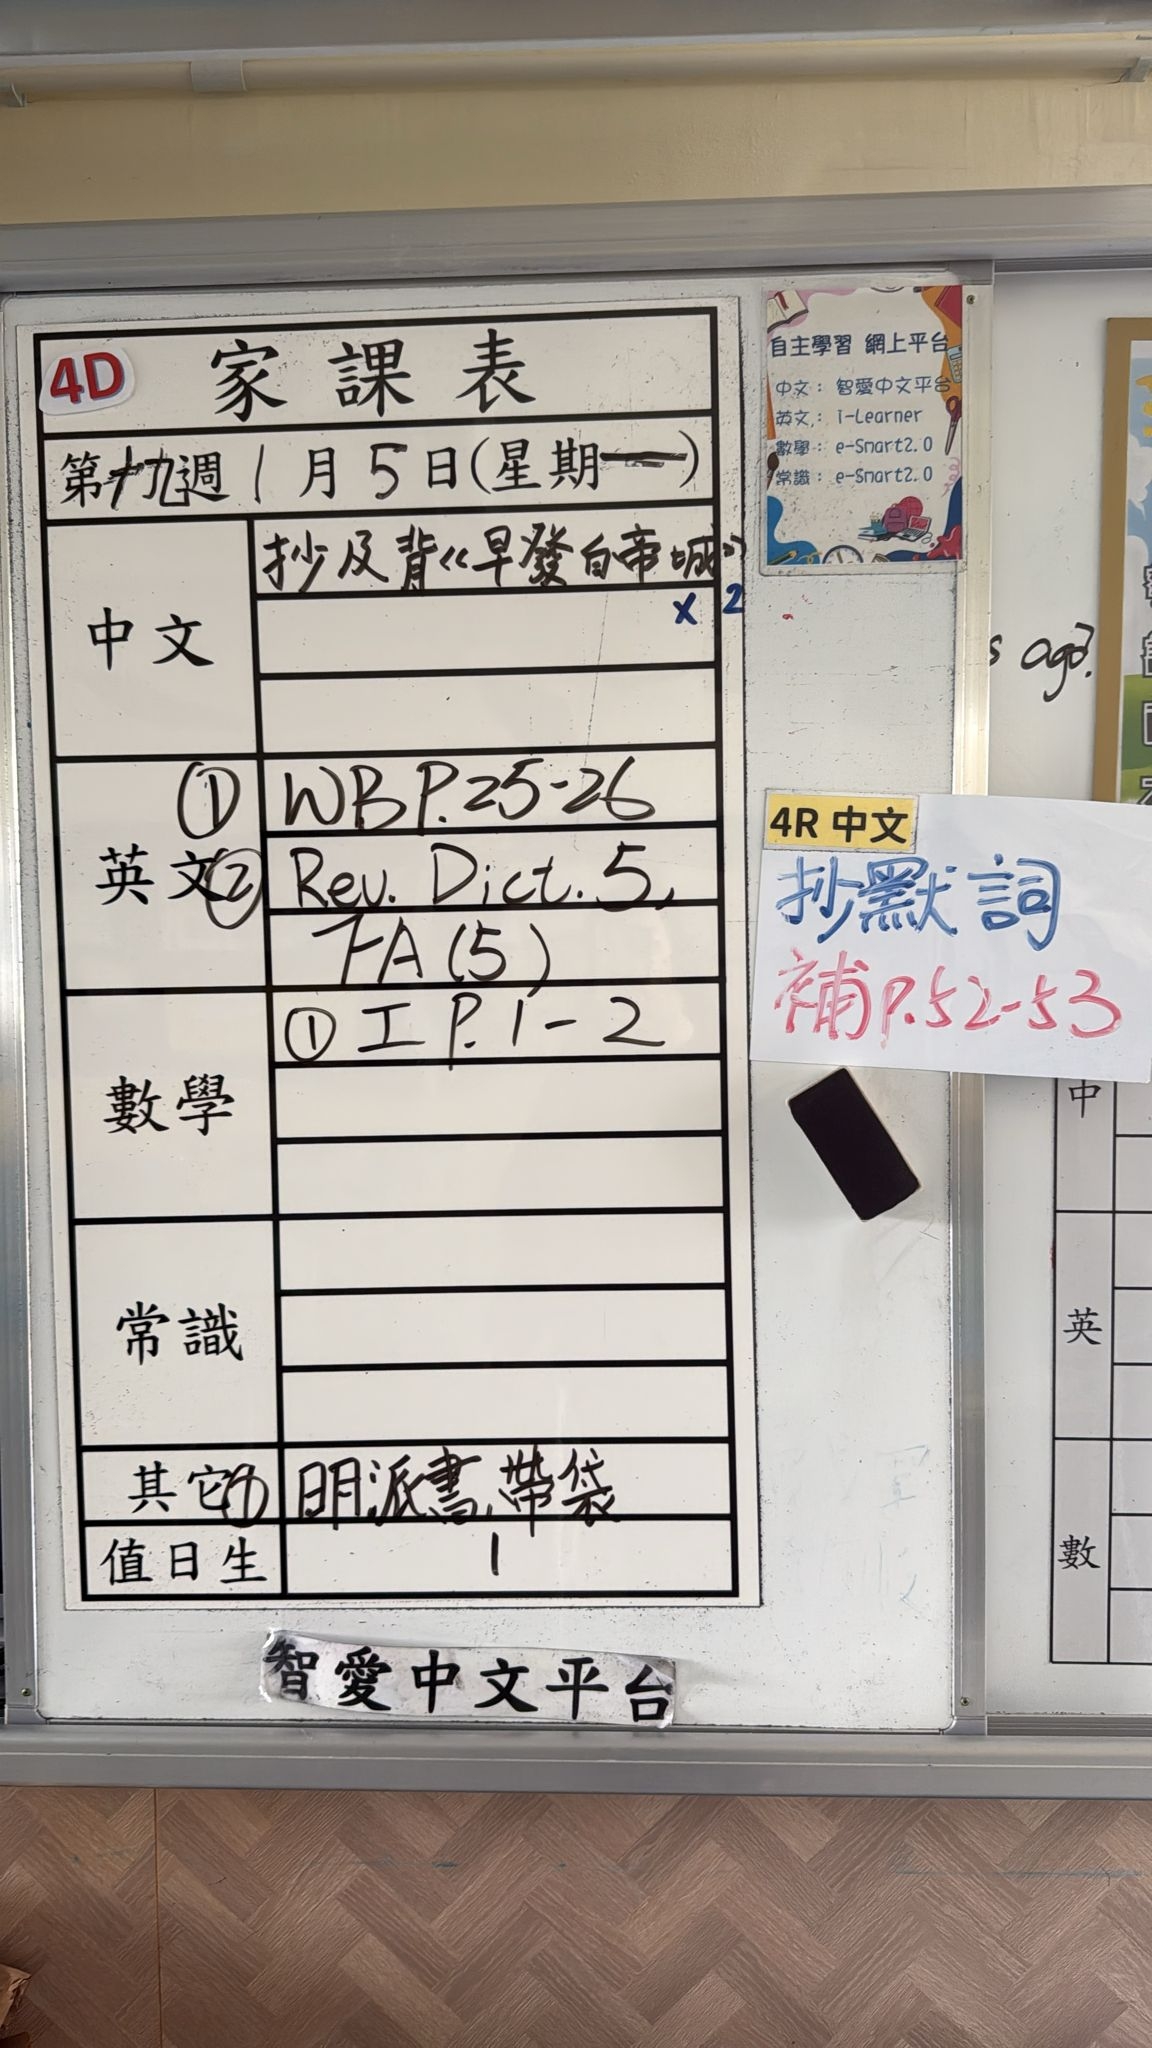 4D 家課表
第十九週 1月5日(星期一)
中文
抄及背《早發白帝城》
x 2
英文
① WB P.25-26
② Rev. Dict. 5,
FA (5)
數學
① I P.1-2
常識
其它
① 明派書,帶袋
值日生
1
智愛中文平台
自主學習 網上平台
中文: 智愛中文平台
英文: i-Learner
數學: e-Smart2.0
常識: e-Smart2.0
s ago?
4R 中文
抄默詞
補P.52-53
中
英
數